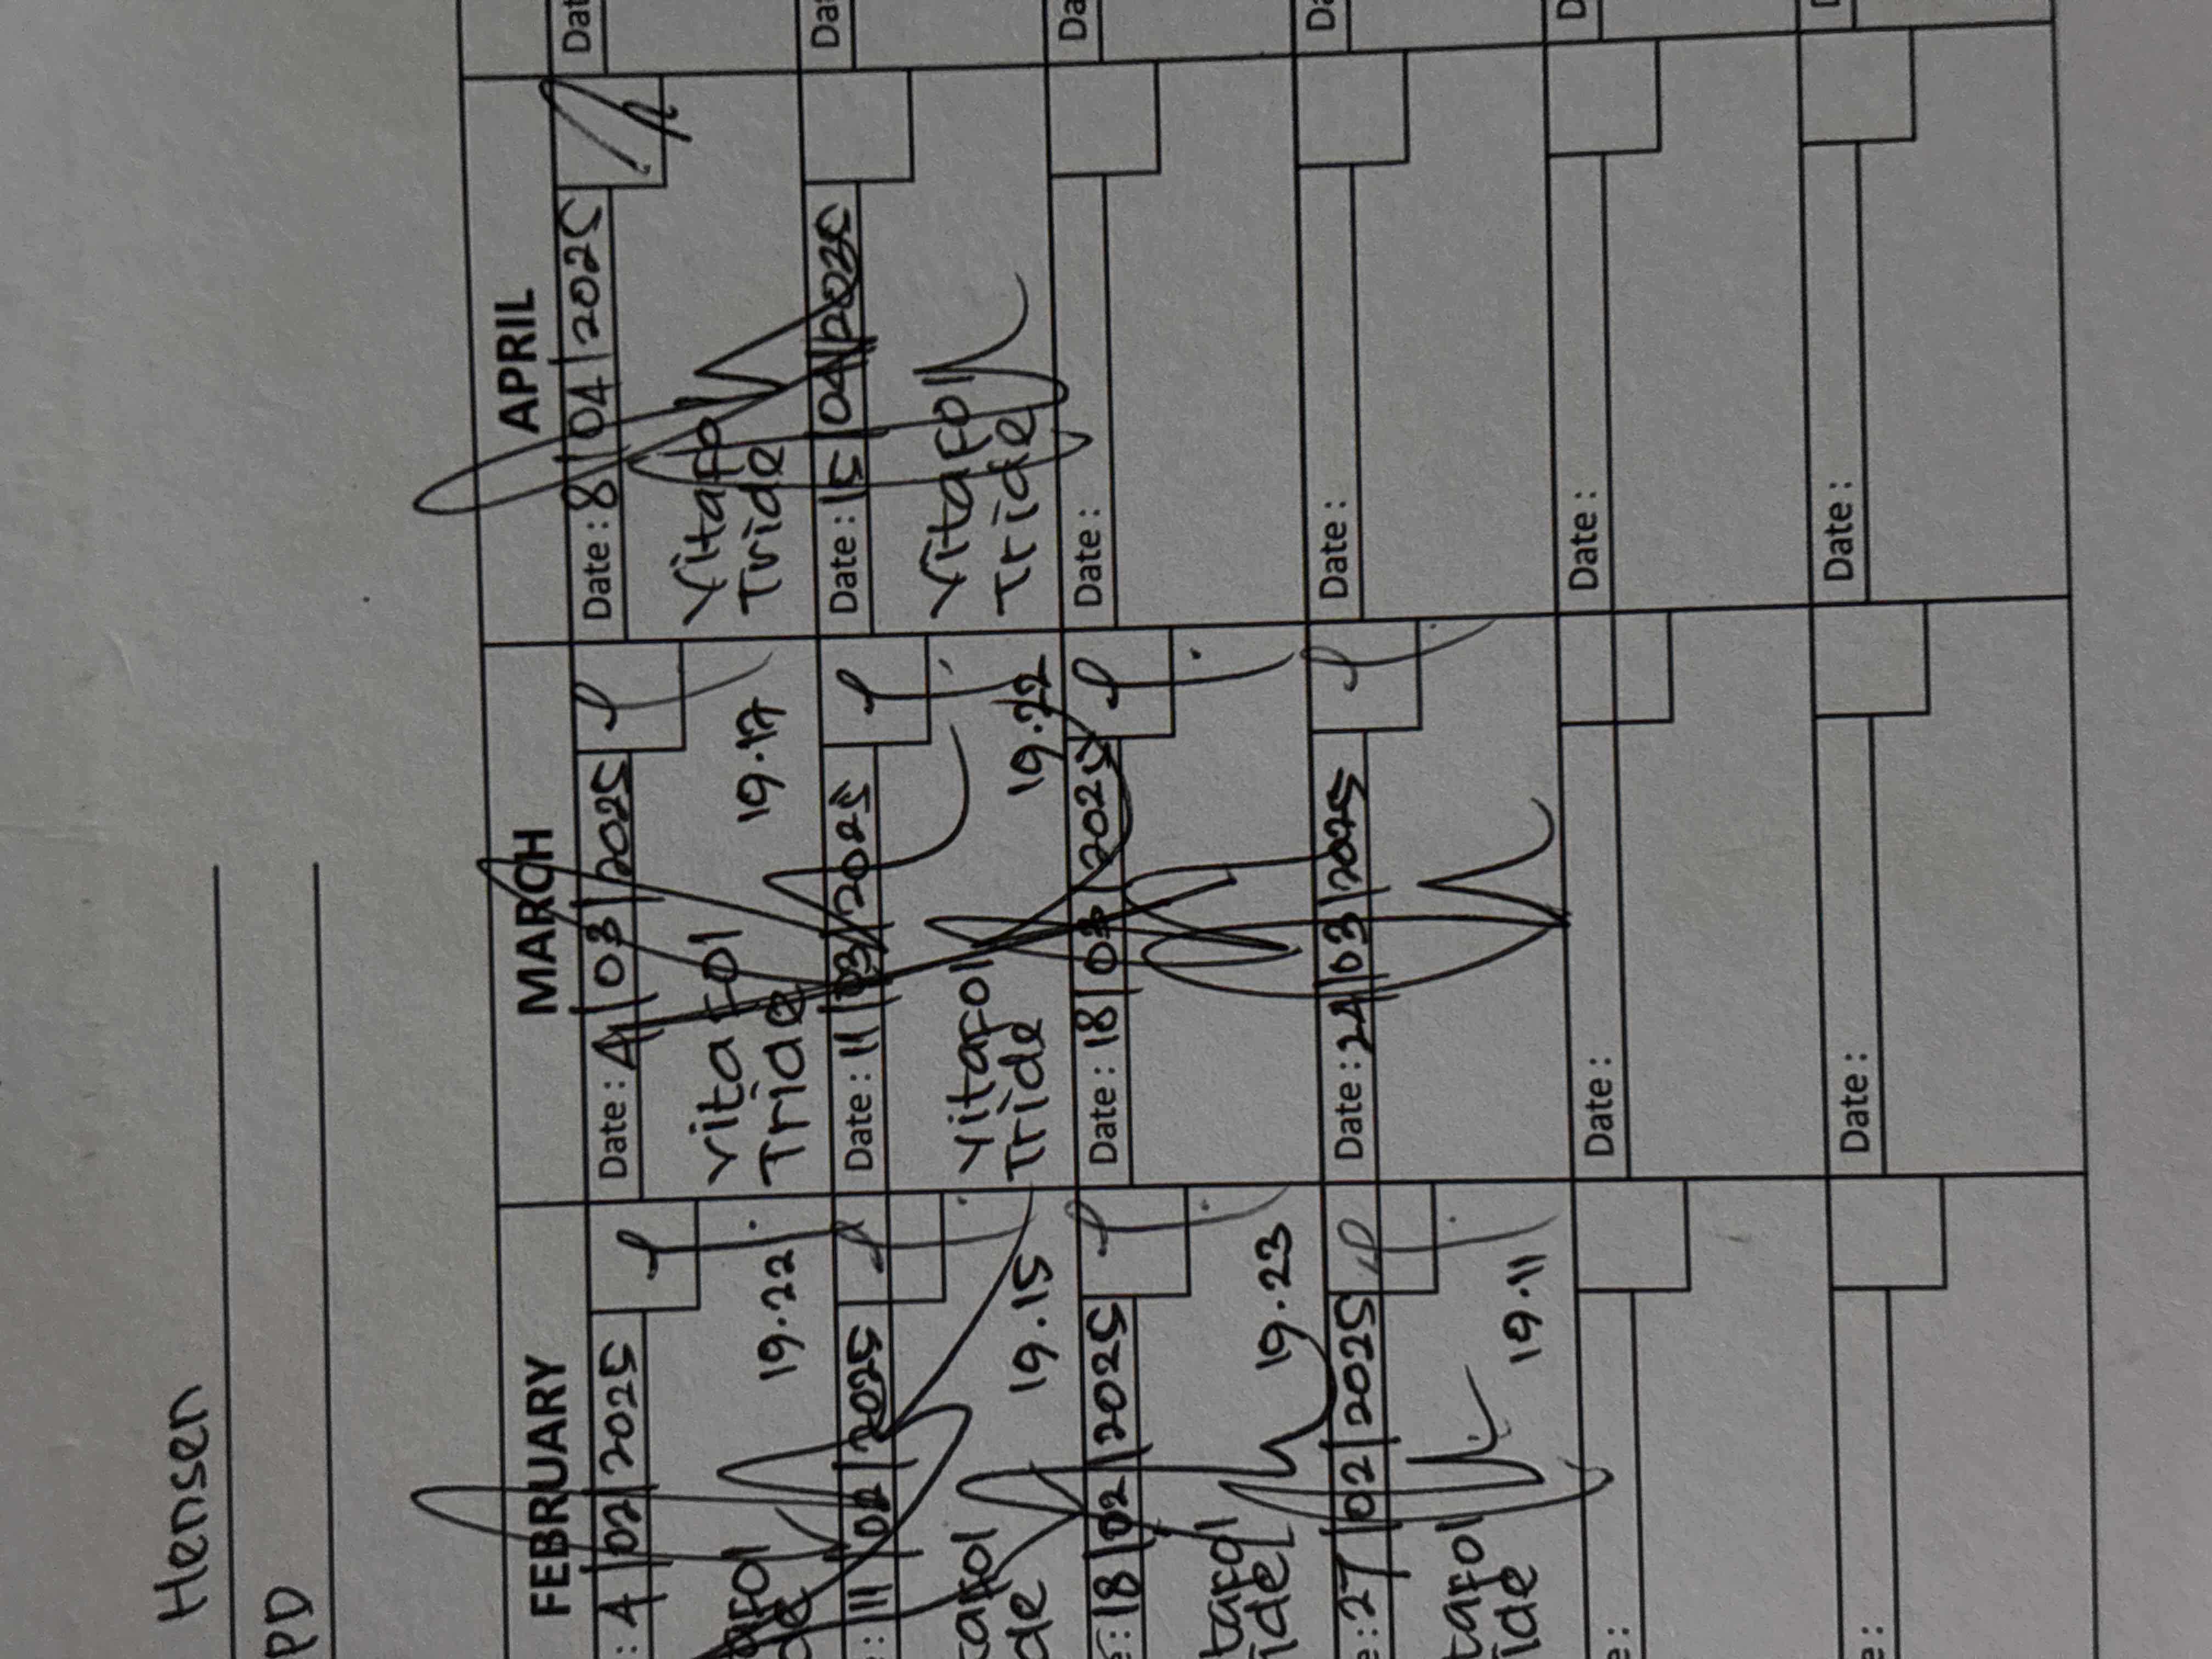 Hensen
PD
FEBRUARY MARCH APRIL
: 4 | 02 | 2025
19.22
Date : 4 | 03 | 2025
vitafol
Tride 19.17
Date : 8 | 04 | 2025
Vitafol
Tride
: 11 | 02 | 2025
tafol
de 19.15
Date : 11 | 03 | 2025
Vitafol
Tride 19.22
Date : 15 | 04 | 2025
Vitafol
Tride
: 18 | 02 | 2025
tafol
ide 19.23
Date : 18 | 03 | 2025
Date :
e : 27 | 02 | 2025
tafol
ide 19.11
Date : 24 | 03 | 2025
Date :
e :
Date :
Date :
e :
Date :
Date :
Dat
Da
Da
Da
D
D